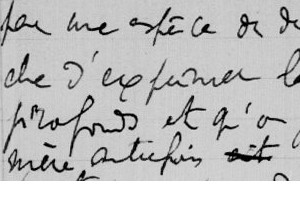 par une espèce de de
che d'exprimer la
profonds et qu'on
mère autrefois